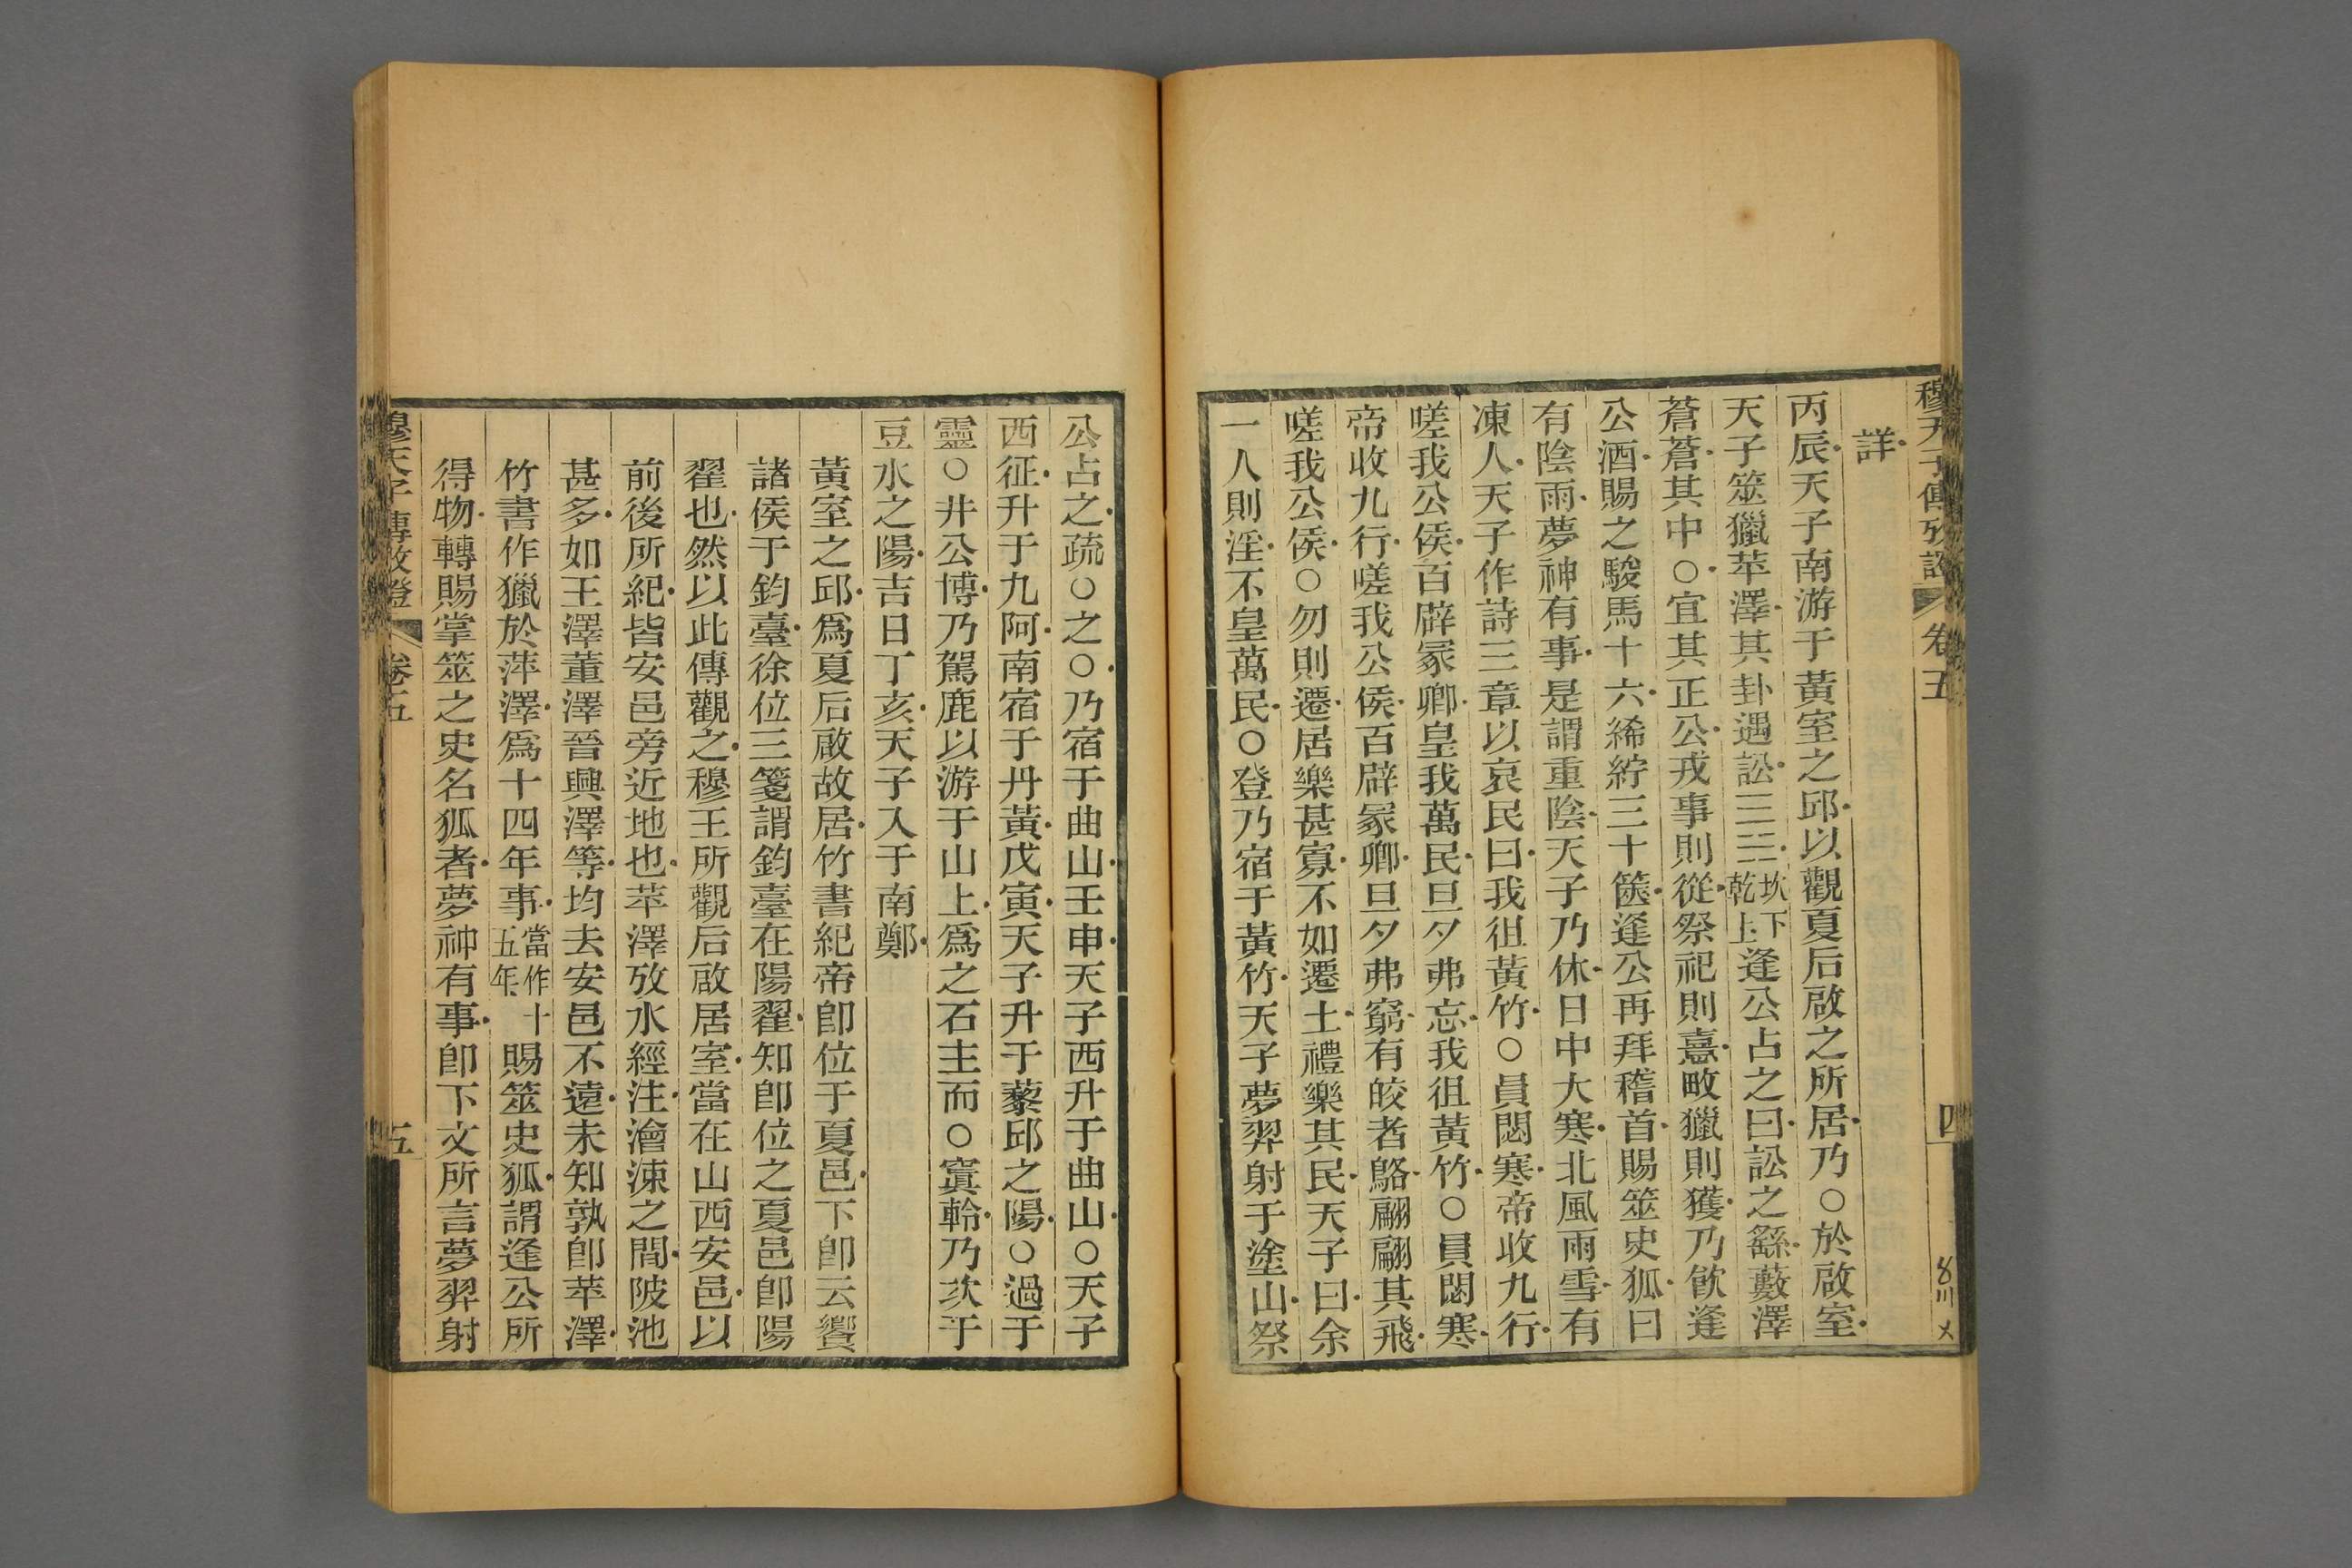 穆天子傳攷證 卷五 四
詳
丙辰天子南游于黃室之邱以觀夏后啟之所居乃○於啟室
天子筮獵苹澤其卦遇訟☰☵坎下乾上逢公占之曰訟之繇藪澤
蒼蒼其中○宜其正公戎事則從祭祀則憙畋獵則獲乃飲逢
公酒賜之駿馬十六絺紵三十篋逢公再拜稽首賜筮史狐曰
有陰雨夢神有事是謂重陰天子乃休日中大寒北風雨雪有
凍人天子作詩三章以哀民曰我徂黃竹○員閟寒帝收九行
嗟我公侯百辟冢卿皇我萬民旦夕弗忘我徂黃竹○員閟寒
帝收九行嗟我公侯百辟冢卿旦夕弗窮有皎者鴼翩翩其飛
嗟我公侯○勿則遷居樂甚寡不如遷土禮樂其民天子曰余
一人則淫不皇萬民○登乃宿于黃竹天子夢羿射于塗山祭
公占之疏○之○乃宿于曲山壬申天子西升于曲山○天子
西征升于九阿南宿于丹黃戊寅天子升于藜邱之陽○過于
靈○井公博乃駕鹿以游于山上爲之石主而○窴軨乃次于
豆水之陽吉日丁亥天子入于南鄭
黃室之邱爲夏后啟故居竹書紀帝卽位于夏邑下卽云饗
諸侯于鈞臺徐位三箋謂鈞臺在陽翟知卽位之夏邑卽陽
翟也然以此傳觀之穆王所觀后啟居室當在山西安邑以
前後所紀皆安邑旁近地也苹澤攷水經注澮涑之間陂池
甚多如王澤董澤晉興澤等均去安邑不遠未知孰卽苹澤
竹書作獵於萍澤爲十四年事當作十五年賜筮史狐謂逢公所
得物轉賜掌筮之史名狐者夢神有事卽下文所言夢羿射
穆天子傳攷證 卷五 五